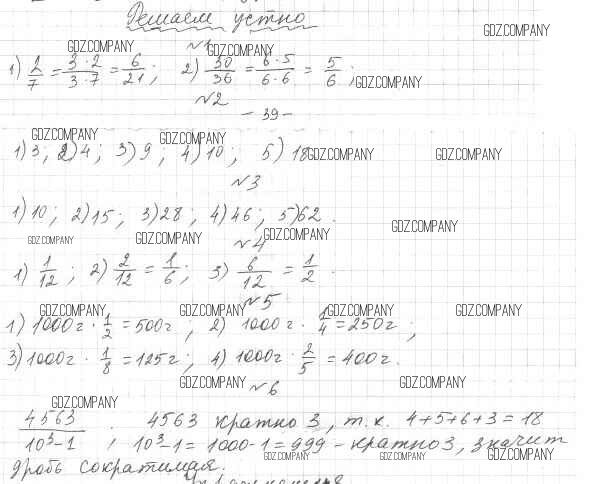 Решаем устно
GDZ.COMPANY
№1
GDZ.COMPANY GDZ.COMPANY
1) 2/7 = 3·2/3·7 = 6/21; 2) 30/36 = 6·5/6·6 = 5/6;
GDZ.COMPANY
№2
- 39 -
GDZ.COMPANY GDZ.COMPANY
1) 3; 2) 4; 3) 9; 4) 10; 5) 18
GDZ.COMPANY GDZ.COMPANY
№3
1) 10; 2) 15; 3) 28; 4) 46; 5) 62.
GDZ.COMPANY
GDZ.COMPANY GDZ.COMPANY GDZ.COMPANY
№4
1) 1/12; 2) 2/12 = 1/6; 3) 6/12 = 1/2.
№5
GDZ.COMPANY GDZ.COMPANY GDZ.COMPANY GDZ.COMPANY
1) 1000г · 1/2 = 500г; 2) 1000г · 1/4 = 250г;
3) 1000г · 1/8 = 125г; 4) 1000г · 2/5 = 400г.
GDZ.COMPANY GDZ.COMPANY
№6
GDZ.COMPANY
4563/10³-1. 4563 кратно 3, т.к. 4+5+6+3=18
, 10³-1 = 1000-1 = 999 - кратно 3, значит
GDZ.COMPANY GDZ.COMPANY GDZ.COMPANY
дробь сократимая.